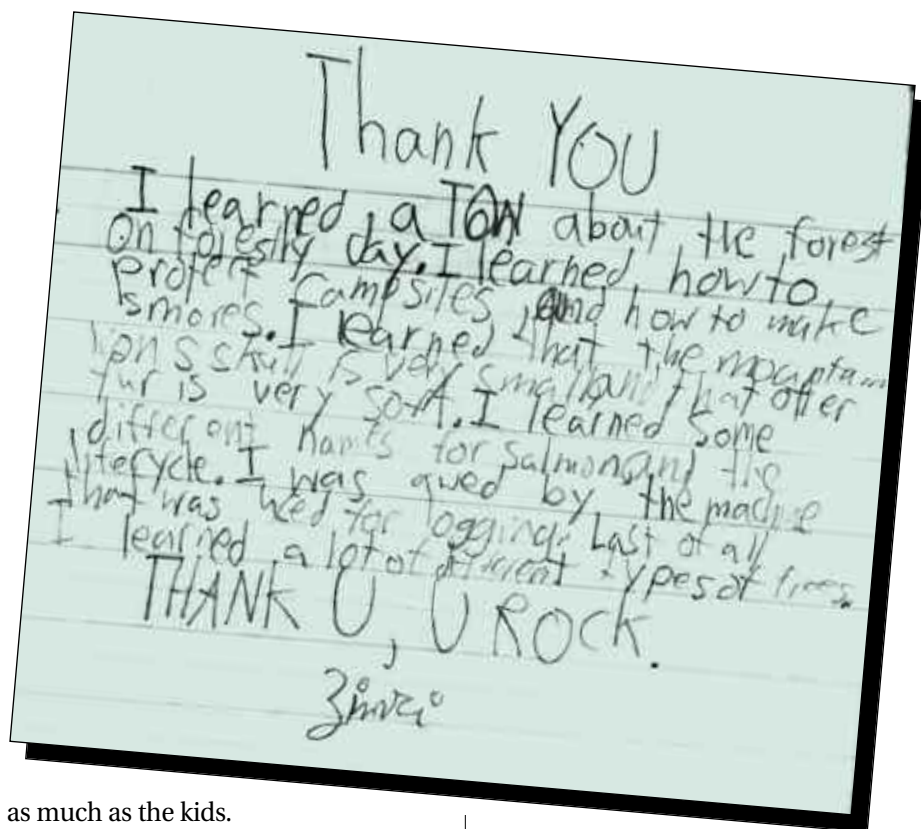 Thank YOU
I learned a TON about the forest
On forestry day. I learned how to
protect campsites and how to make
smores. I learned that the mountain
lion s skull is very small and that otter
fur is very soft. I learned some
different names for salmon and the
lifecycle. I was awed by the machine
that was used for logging. Last of all
I learned a lot of different types of trees.
THANK U, U ROCK.
as much as the kids.